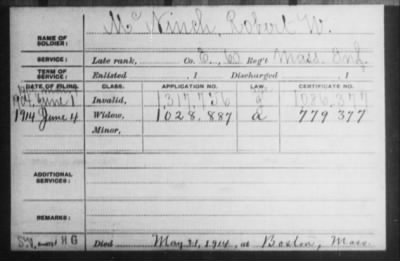 NAME OF SOLDIER: Mc Ninch, Robert W.
SERVICE: Late rank, Co. E, 60 Reg't Mass. Inf.
TERM OF SERVICE: Enlisted , 1 Discharged , 1
DATE OF FILING. CLASS. APPLICATION NO. LAW. CERTIFICATE NO.
June 1 Invalid, 1,317,726 1086,377
1914 June 4 Widow, 1028,887 a 779377
Minor,
ADDITIONAL SERVICES:
REMARKS:
H G Died May 21, 1914, at Boston, Mass.